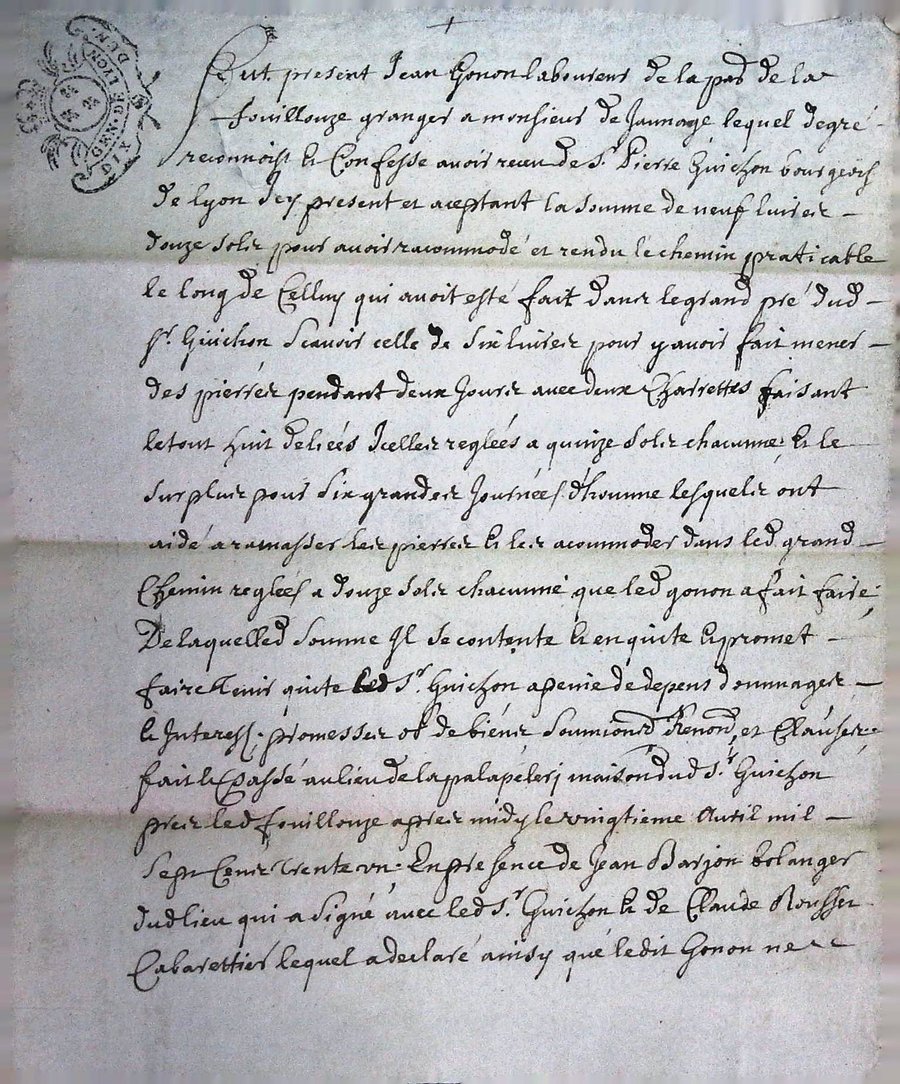 GEN. DE LYON
DIX DEN.
Fut present Jean Gonon laboureur de la par de la
fouillouze granger a monsieur de Jaunage lequel degré
reconnoist et Confesse avoir receu de Sr. Pierre Guichon bourgeois
de Lyon Icy present et aceptant la somme de neuf livres
douze sols pour avoir racommodé et rendu le chemin praticable
le long de Celluy qui avoit esté fait dans le grand pré dud
Sr. Guichon Scavoir celle de Six livres pour y avoir fait mener
des pierres pendant deux Jours avec deux Charrettes faisant
le tout huit Icelles reglées a quinze sols chacunne Et le
surplus pour Six grandes Journées d'homme lesquels ont
aidé a ramasser les pierres et les acommoder dans led grand
Chemin reglées a douze sols chacunne que led gonon a fait faire
De laquelled Somme Il se contente et en quite et promet
faire tenir quite led Sr. Guichon a penne de depens dommages
et Interests. promesses ob de biens Soumions Renon et Clauses
fait et Passé au lieu de la palapeleri maison dud Sr. Guichon
pres led fouillouze apres midy le vingtieme Avril mil
Sept Cens trente un. En presence de Jean Barjon bolanger
dud lieu qui a signé avec led Sr. Guichon et de Claude Rousset
Cabarettier lequel a declaré ainsy que ledit Gonon ne